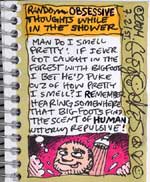 RANDOM OBSESSIVE
THOUGHTS WHILE
IN THE SHOWER
MAN DO I SMELL
PRETTY! IF I EVER
GOT CAUGHT IN THE
FOREST WITH BIGFOOT
I BET HE'D PUKE
OUT OF HOW PRETTY
I SMELL! I REMEMBER
HEARING SOMEWHERE
THAT BIG-FOOTS FIND
THE SCENT OF HUMANS
UTTERLY REPULSIVE!